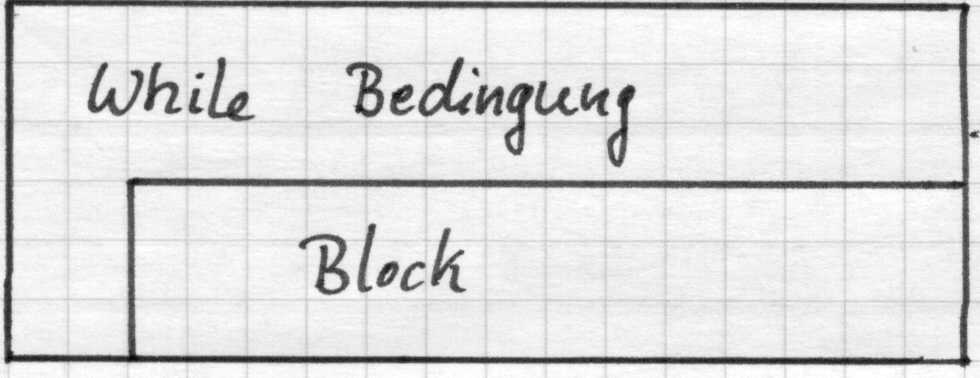 While Bedingung
Block